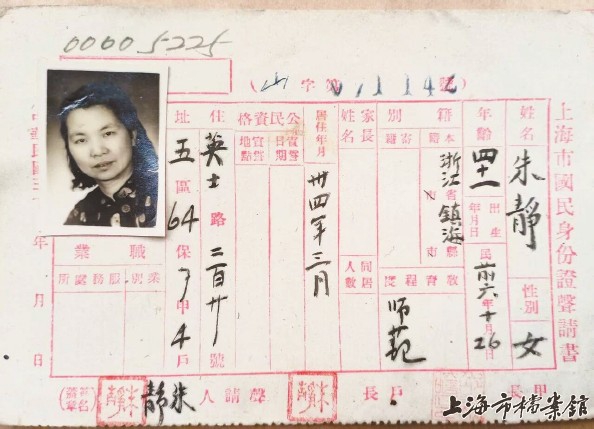 00005225
上海市國民身份證聲請書
姓名 朱靜 性別 女
年齡 四十一 出生年月日 民前六年十月26
籍別 本籍 浙江省鎮海縣市
寄籍
教育程度 師範
家長姓名
同居人數
居住年月 卅四年三月
公民資格 宣誓日期 宣誓地點
住址 英士路二百廿號
五區64保7甲4戶
職業 業別 服務處所
年 月 日
甲長
戶長
聲請人 朱靜
上海市檔案館